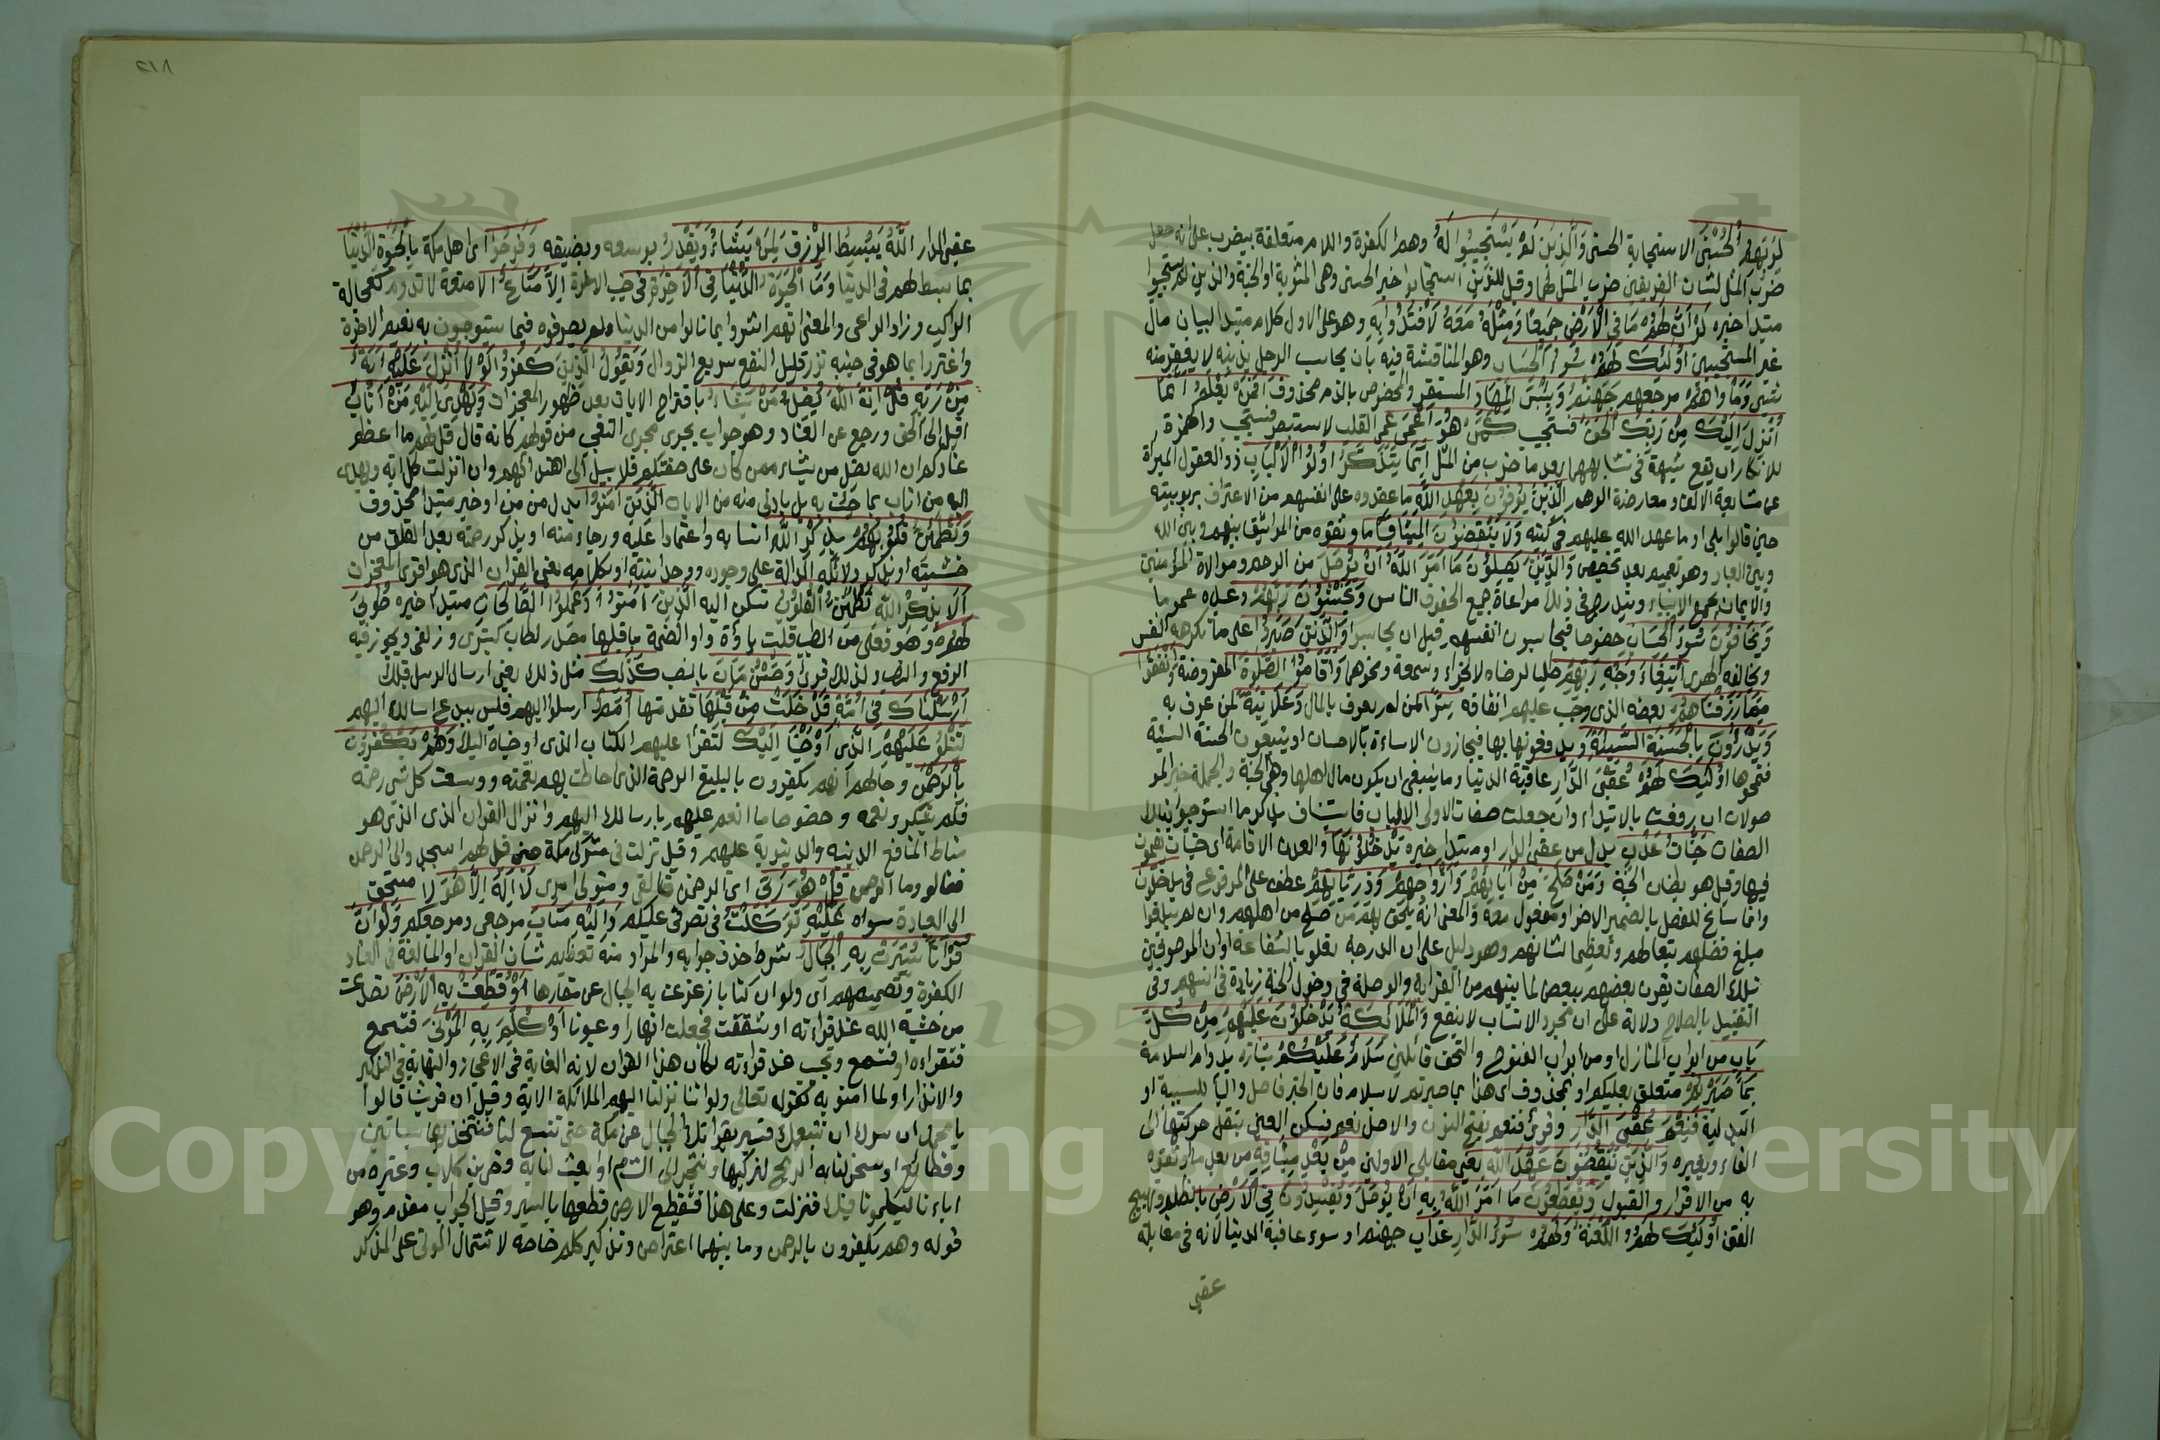 لِرَبِّهِمُ الْحُسْنَى الاستجابة الحسنى وَالَّذِينَ لَمْ يَسْتَجِيبُوا لَهُ وهم الكفرة واللام متعلقة بيضرب على انه جعل
ضرب المثل لشان الفريقين ضرب المثل لهما وقيل للذين استجابوا خبر الحسنى وهى المثوبة او الجنة والذين لم يستجيبوا
مبتدا خبره لَوْ أَنَّ لَهُمْ مَا فِي الْأَرْضِ جَمِيعًا وَمِثْلَهُ مَعَهُ لَافْتَدَوْا بِهِ وهو على الاول كلام مبتدا لبيان مآل
غير المستجيبين أُولَئِكَ لَهُمْ سُوءُ الْحِسَابِ وهو المناقشة فيه بان يحاسب الرجل بذنبه لا يغفر منه
شيئ وَمَأْوَاهُمْ مرجعهم جَهَنَّمُ وَبِئْسَ الْمِهَادُ المستقر والمخصوص بالذم محذوف أَفَمَنْ يَعْلَمُ أَنَّمَا
أُنْزِلَ إِلَيْكَ مِنْ رَبِّكَ الْحَقُّ فستجيب كَمَنْ هُوَ أَعْمَى عمى القلب لا يستبصر فيستجيب والهمزة
للانكار ان يقع شبهة فى تشابههما بعد ما ضرب من المثل إِنَّمَا يَتَذَكَّرُ أُولُوا الْأَلْبَابِ ذو العقول المبرأة
عن مشايعة الالف ومعارضة الوهم الَّذِينَ يُوفُونَ بِعَهْدِ اللَّهِ ما عقدوه على انفسهم من الاعتراف بربوبيته
حين قالوا بلى او ما عهد الله عليهم فى كتبه وَلَا يَنْقُضُونَ الْمِيثَاقَ ما وثقوه من المواثيق بينهم وبين الله
وبين العباد وهو تعميم بعد تخصيص وَالَّذِينَ يَصِلُونَ مَا أَمَرَ اللَّهُ بِهِ أَنْ يُوصَلَ من الرحم وموالاة المؤمنين
والايمان بجميع الانبياء ويندرج فى ذلك مراعاة جميع الحقوق الناس وَيَخْشَوْنَ رَبَّهُمْ وعيده عموما
وَيَخَافُونَ سُوءَ الْحِسَابِ خصوصا فيحاسبون انفسهم قبل ان يحاسبوا وَالَّذِينَ صَبَرُوا على ما تكرهه النفس
ويخالفه الهوى ابْتِغَاءَ وَجْهِ رَبِّهِمْ طلبا لرضاه لا لجزاء وسمعة ونحوهما وَأَقَامُوا الصَّلَوةَ المفروضة وَأَنْفَقُوا
مِمَّا رَزَقْنَاهُمْ بعضه الذى وجب عليهم انفاقه سِرًّا لمن لم يعرف بالمال وَعَلَانِيَةً لمن عرف به
وَيَدْرَؤُنَ بِالْحَسَنَةِ السَّيِّئَةَ ويدفعونها بها فيجازون الاساءة بالاحسان او يتبعون الحسنة السيئة
فتمحوها أُولَئِكَ لَهُمْ عُقْبَى الدَّارِ عاقبة الدنيا وما ينبغى ان يكون مآل اهلها وهى الجنة والجملة خبر المو
صولات ان رفعت بالابتداء وان جعلت صفات لاولى الالباب فاستيناف بذكر ما استوجبوا بتلك
الصفات جَنَّاتُ عَدْنٍ بدل من عقبى الدار او مبتدا خبره يَدْخُلُونَهَا والعدن الاقامة اى جنات يقيمون
فيها وقيل هو بطنان الجنة وَمَنْ صَلَحَ مِنْ آبَائِهِمْ وَأَزْوَاجِهِمْ وَذُرِّيَّاتِهِمْ عطف على المرفوع فى يدخلون
وانما ساغ للفصل بالضمير الاخر او مفعول معه والمعنى انه يلحق بهم من صلح من اهلهم وان لم يبلغوا
مبلغ فضلهم تبعا لهم وتعظيما لشانهم وهو دليل على ان الدرجة تعلو بالشفاعة او ان الموصوفين
بتلك الصفات يقرن بعضهم ببعض لما بينهم من القرابة والوصلة فى دخول الجنة زيادة فى انسهم وفى
التقييد بالصلاح دلالة على ان مجرد الانساب لا ينفع وَالْمَلَائِكَةُ يَدْخُلُونَ عَلَيْهِمْ مِنْ كُلِّ
بَابٍ من ابواب المنازل او من ابواب الفتوح والتحف قائلين سَلَامٌ عَلَيْكُمْ بشارة بدوام السلامة
بِمَا صَبَرْتُمْ متعلق بعليكم او بمحذوف اى هذا بما صبرتم لا سلام فان الخبر فاصل والبا للسببية او
البدلية فَنِعْمَ عُقْبَى الدَّارِ وقرئ فنعم بفتح النون والاصل نعم فسكن العين بنقل حركتها الى
الفاء وبغيره وَالَّذِينَ يَنْقُضُونَ عَهْدَ اللَّهِ يعنى مقابلى الاولين مِنْ بَعْدِ مِيثَاقِهِ من بعد ما وثقوه
به من الاقرار والقبول وَيَقْطَعُونَ مَا أَمَرَ اللَّهُ بِهِ أَنْ يُوصَلَ وَيُفْسِدُونَ فِي الْأَرْضِ بالظلم وتهييج
الفتن أُولَئِكَ لَهُمُ اللَّعْنَةُ وَلَهُمْ سُوءُ الدَّارِ عذاب جهنم او سوء عاقبة الدنيا لانه فى مقابلة
عقبى
٢١٨
عقبى الدار اللَّهُ يَبْسُطُ الرِّزْقَ لِمَنْ يَشَاءُ وَيَقْدِرُ يوسعه ويضيقه وَفَرِحُوا اى اهل مكة بِالْحَيَوةِ الدُّنْيَا
بما بسط لهم فى الدنيا وَمَا الْحَيَوةُ الدُّنْيَا فِي الْآخِرَةِ فى جنب الاخرة إِلَّا مَتَاعٌ الا متعة لا تدوم كعجالة
الراكب وزاد الراعى والمعنى انهم اشروا بما نالوا من الدنيا ولم يصرفوه فيما يستوجبون به نعيم الاخرة
واغتروا بما هو فى جنبه نزر قليل النفع سريع الزوال وَيَقُولُ الَّذِينَ كَفَرُوا لَوْلَا أُنْزِلَ عَلَيْهِ آيَةٌ
مِنْ رَبِّهِ قُلْ إِنَّ اللَّهَ يُضِلُّ مَنْ يَشَاءُ باقتراح الايات بعد ظهور المعجزات وَيَهْدِي إِلَيْهِ مَنْ أَنَابَ
اقبل الى الحق ورجع عن العناد وهو جواب يجرى مجرى التعجب من قولهم كانه قال قل لهم ما اعظم
عنادكم ان الله يضل من يشاء ممن كان على صفتكم فلا سبيل الى اهتدائهم وان انزلت كل اية ويهدى
اليه من اناب بما جئت به بل بادنى منه من الايات الَّذِينَ آمَنُوا بدل من من او خبر مبتدا محذوف
وَتَطْمَئِنُّ قُلُوبُهُمْ بِذِكْرِ اللَّهِ انسا به واعتمادا عليه ورجاء منه او بذكر رحمته بعد القلق من
خشيته او بذكر دلائله الدالة على وجوده ووحدانيته او بكلامه يعنى القران الذى هو اقوى المعجزات
أَلَا بِذِكْرِ اللَّهِ تَطْمَئِنُّ الْقُلُوبُ تسكن اليه الَّذِينَ آمَنُوا وَعَمِلُوا الصَّالِحَاتِ مبتدا خبره طُوبَى
لَهُمْ وهو فعلى من الطيب قلبت ياؤه واو الضمة ما قبلها مصدر لطاب كبشرى وزلفى ويجوز فيه
الرفع والنصب ولذلك قرئ وَحُسْنُ مَآبٍ بالنصب كَذَلِكَ مثل ذلك يعنى ارسال الرسل قبلك
أَرْسَلْنَاكَ فِي أُمَّةٍ قَدْ خَلَتْ مِنْ قَبْلِهَا تقدمتها أُمَمٌ ارسلوا اليهم فليس ببدع ارسالك اليهم
لِتَتْلُوَ عَلَيْهِمُ الَّذِي أَوْحَيْنَا إِلَيْكَ لتقرأ عليهم الكتاب الذى اوحيناه اليك وَهُمْ يَكْفُرُونَ
بِالرَّحْمَنِ وحالهم انهم يكفرون بالبليغ الرحمة الذى احاطت بهم نعمته ووسعت كل شى رحمته
فلم يشكروا نعمه وخصوصا ما انعم عليهم بارسالك اليهم وانزال القران الذى الذى هو
مناط المنافع الدينيه والدنيوية عليهم وقيل نزلت فى مشركى مكة حين قيل لهم اسجدوا للرحمن
فقالوا وما الرحمن قُلْ هُوَ رَبِّي اى الرحمن خالقى ومتولى امرى لَا إِلَهَ إِلَّا هُوَ لا مستحق
الى العبادة سواه عَلَيْهِ تَوَكَّلْتُ فى نصرتى عليكم وَإِلَيْهِ مَتَابِ مرجعى ومرجعكم وَلَوْ أَنَّ
قُرْآنًا سُيِّرَتْ بِهِ الْجِبَالُ شرط حذف جوابه والمراد منه تعظيم شان القران او المبالغة فى العناد
الكفرة وتصميمهم اى ولو ان كتابا زعزعت به الجبال عن مقارها أَوْ قُطِّعَتْ بِهِ الْأَرْضُ تصدعت
من خشية الله عند قراءته او شققت فجعلت انهارا وعيونا أَوْ كُلِّمَ بِهِ الْمَوْتَى فتسمع
فتقراءه او فتسمع وتجب عند قراءته لكان هذا القران لانه الغاية فى الاعجاز والنهاية فى التذكير
والانذار او لما امنوا به كقوله تعالى ولو اننا نزلنا اليهم الملائكة الاية وقيل ان قريشا قالوا
يا محمد ان سرك ان نتبعك فسير بقرآنك الجبال عن مكة حتى تتسع لنا فنتخذ فيها بساتين
وقطائع او سخر لنا به الريح لنركبها ونتجر الى الشام او ابعث لنا به وخزين كلاب وغيره من
اباءنا ليكلمونا فيك فنزلت وعلى هذا فتقطيع الارض قطعها بالسير وقيل الجواب مقدم وهو
قوله وهم يكفرون بالرحمن وما بينهما اعتراض وتذكير كلم خاصة لاشتمال الموتى على المذكر
Copyright © King Saud University
1957